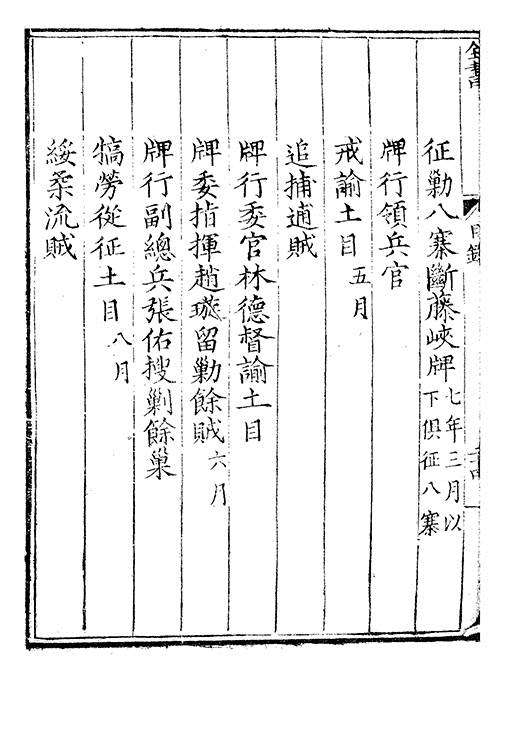 全書
目錄
征勦八寨斷藤峽牌七年三月以下俱征八寨
牌行領兵官
戒諭土目五月
追捕逋賊
牌行委官林德督諭土目
牌委指揮趙璇留勦餘賊六月
牌行副總兵張佑搜剿餘巢
犒勞從征土目八月
綏柔流賊